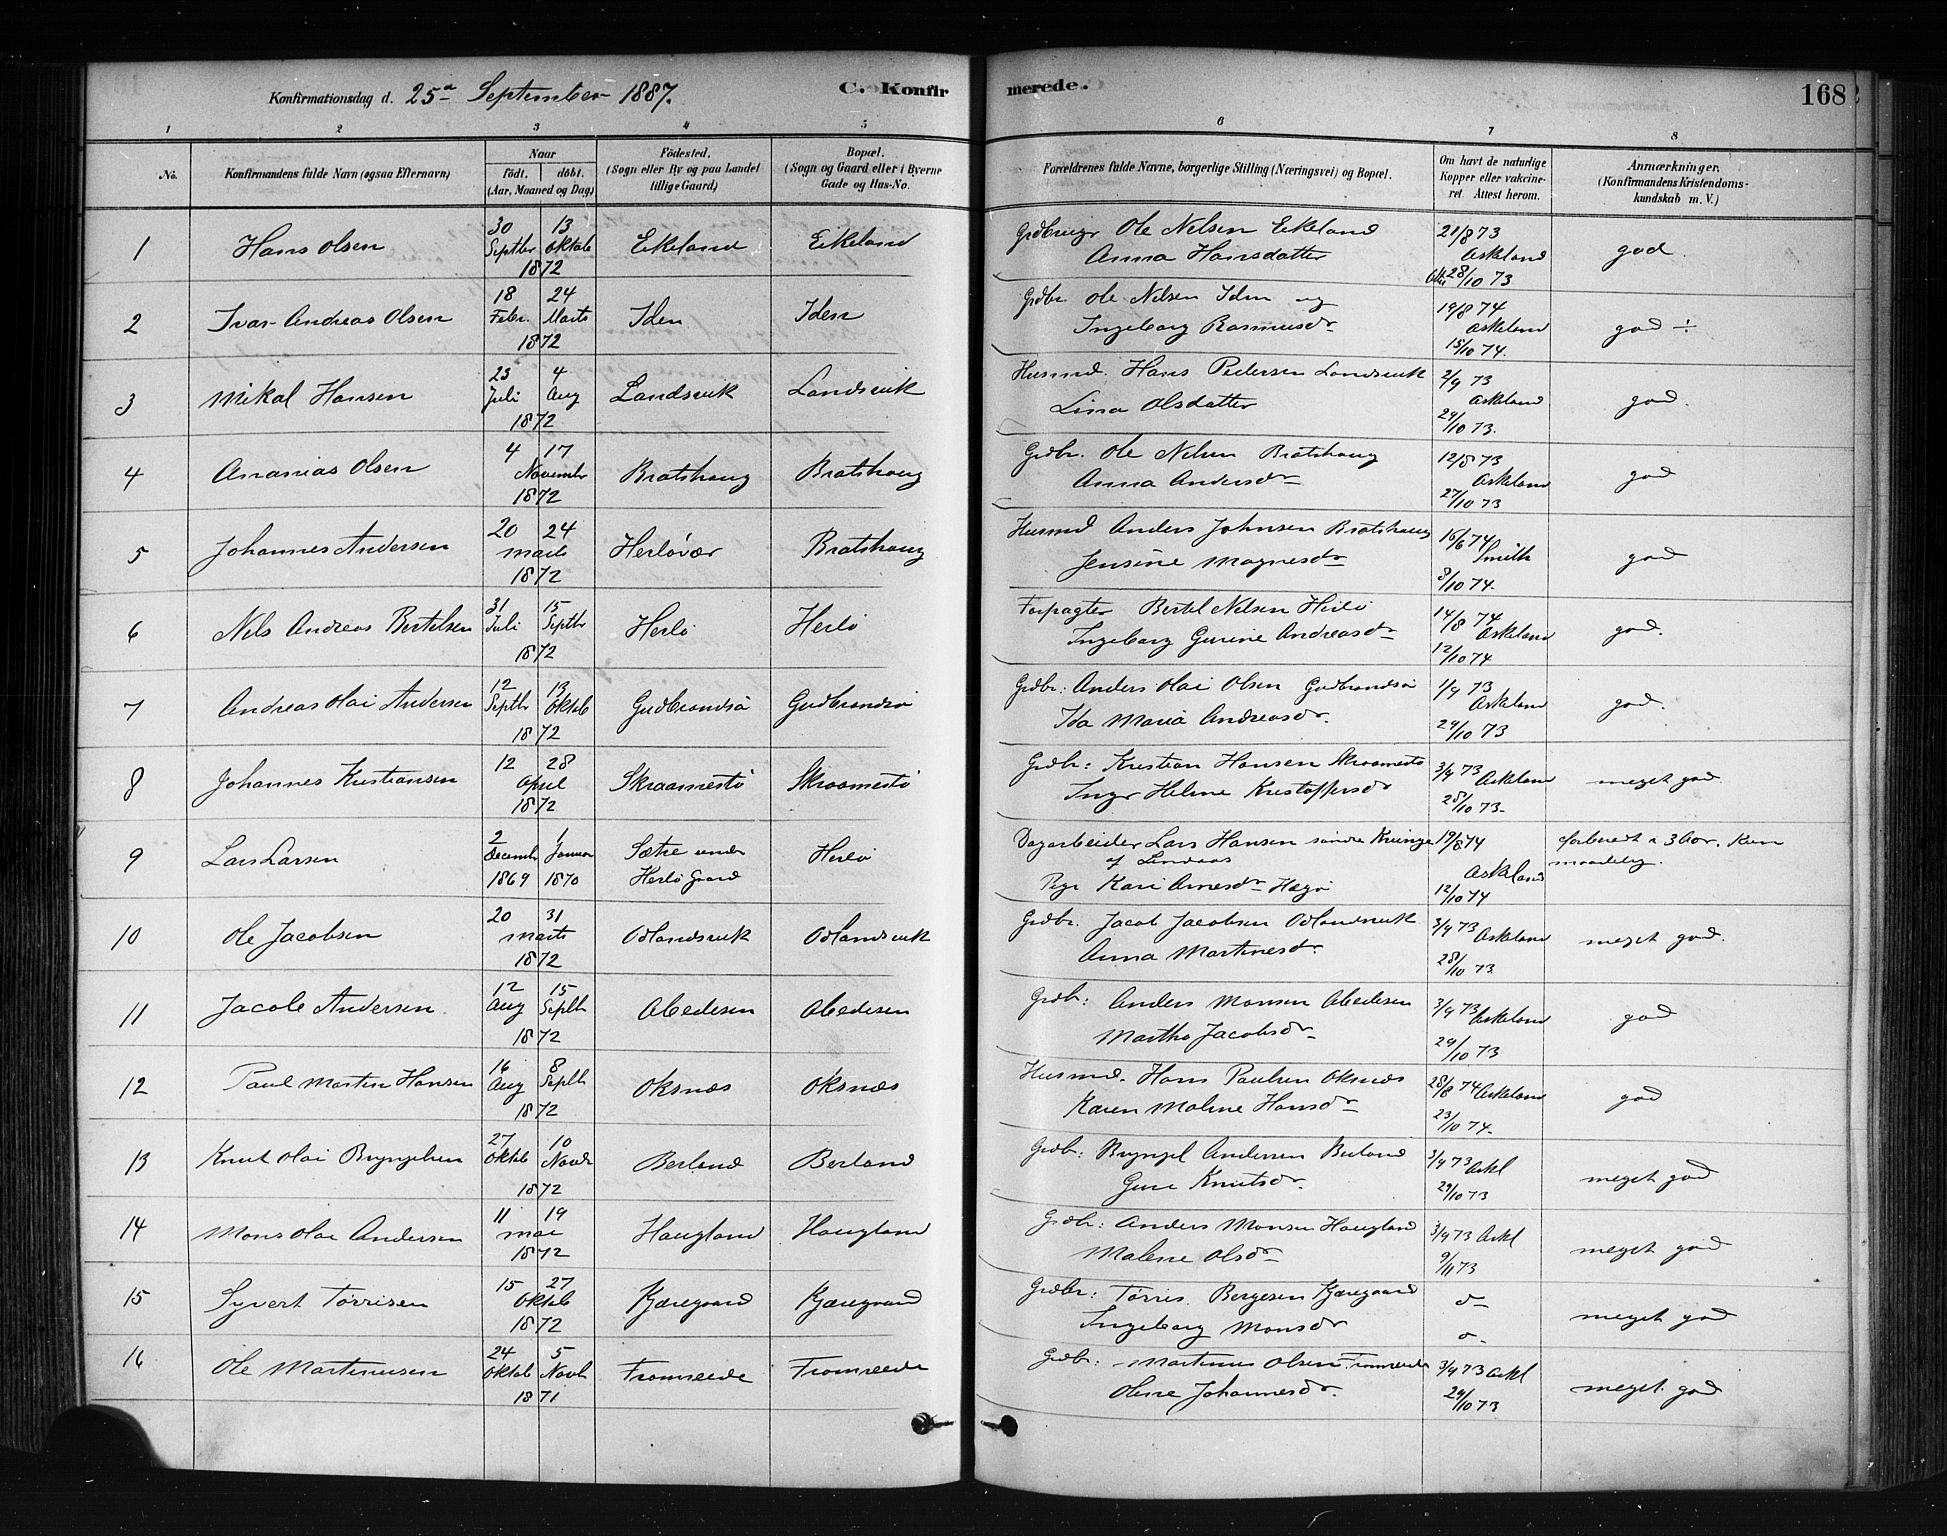 Konfirmationsdag d. 25de September 1887.
C. Konfirmerede.
168
1 2 3 4 5 6 7 8
No.
Konfirmandens fulde Navn (ogsaa Efternavn)
Naar
födt. döbt.
(Aar, Maaned og Dag)
Födested.
(Sogn eller By og paa Landet tillige Gaard)
Bopæl.
(Sogn og Gaard eller i Byerne Gade og Hus-No.
Forældrenes fulde Navne, borgerlige Stilling (Næringsvei) og Bopæl.
Om havt de naturlige Kopper eller vaccineret. Attest herom.
Anmærkninger.
(Konfirmandens Kristendomskundskab m. V.)
1 Hans Olsen 30 Septbr 13 Oktob 1872 Eikeland Eikeland Ole Nelsen Eikeland
Anna Hansdatter 21/8 73 Askeland 28/10 73 god.
2 Ivar Andreas Olsen 18 Febr. 24 Marts 1872 Iden Iden Grdbr. Ole Nelsen Iden og
Ingeborg Rasmusdr 19/8 74 Askeland 15/10 74. god ÷
3 Mikal Hansen 23 Juli 4 Aug 1872 Landsvik Landsvik Husmd. Hans Pedersen Landsvik
Lina Olsdatter 2/9 73 Askeland 29/10 73. god.
4 Ananias Olsen 4 17 November 1872 Bratshaug Bratshaug Grdbr. Ole Nelsen Bratshaug
Anna Andersdr 12/8 73 Askeland 27/10 73 god
5 Johannes Andersen 20 24 Marts 1872 Herløvær Bratshaug Husmd Anders Johnsen Bratshaug
Jensine Magnesdr 16/6 74 Smith 8/10 74. god
6 Nels Andreas Bertelsen 31 Juli 15 Septbr 1872 Herlø Herlø Forpagter Bertel Nelsen Herlø
Ingeborg Gurine Andreasdr 14/8 74 Askeland 12/10 74 god.
7 Andreas Olai Andersen 12 Septbr 13 Oktob 1872 Gudbrandsø Gudbrandsø Grdbr: Anders Olai Olsen Gudbrandsø
Ida Maria Andreasdr. 1/9 73 Askeland 29/10 73 god.
8 Johannes Kristiansen 12 28 April 1872 Skraamestø Skraamestø Grdbr: Kristian Hansen Skraamestø
Inger Helene Kristoffersdr 3/9 73 Askeland 28/10 73. meget god
9 Lars Larsen 2 Decembr 1869 1 Januar 1870 Sætre under Herlø Gaard Herlø Dagarbeider Lars Hansen søndre Kvinge
af Lindaas
Pige Kari Arnesdr Hagø 19/8 74 Askeland 12/10 74 forberedt i 3 Aar. Kun
maadelig.
10 Ole Jacobsen 20 31 Marts 1872 Odlandsvik Odlandsvik Grdbr. Jacob Jacobsen Odlandsvik
Anna Martinesdr. 3/9 73 Askeland 28/10 73 meget god.
11 Jacob Andersen 12 Aug 15 Septbr 1872 Abedesen Abedesen Grdbr: Anders Monsen Abedesen
Martha Jacobsdr 3/9 73 Askeland 29/10 73 god
12 Paul Martin Hansen 16 Aug 8 Septb 1872 Oksnæs Oksnæs Husmd. Hans Paulsen Oksnæs
Karen Malene Hansdr 28/8 74 Askeland 23/10 74. god
13 Knut Olai Bryngelsen 27 Oktob 10 Novbr 1872 Berland Berland Grdbr: Bryngel Andersen Berland
Guri Knutsdr. 3/9 73 Askl 29/10 73 meget god
14 Mons Olai Andersen 11 19 Mai 1872 Haugland Haugland Grdbr: Anders Monsen Haugland
Malene Olsdr 3/9 73 Askl 9/11 73 meget god
15 Syvert Tørrisen 15 27 Oktob 1872 Kjæregaard Kjæregaard Grdbr: Tørris Børgesen Kjæregaard
Ingeborg Monsdr meget god
16 Ole Martinusen 24 Oktob 5 Novb 1871 Fromreide Fromreide Grdbr: Martinus Olsen Fromreide
Oline Johannesdr. 3/9 73 Askl 29/10 73 meget god